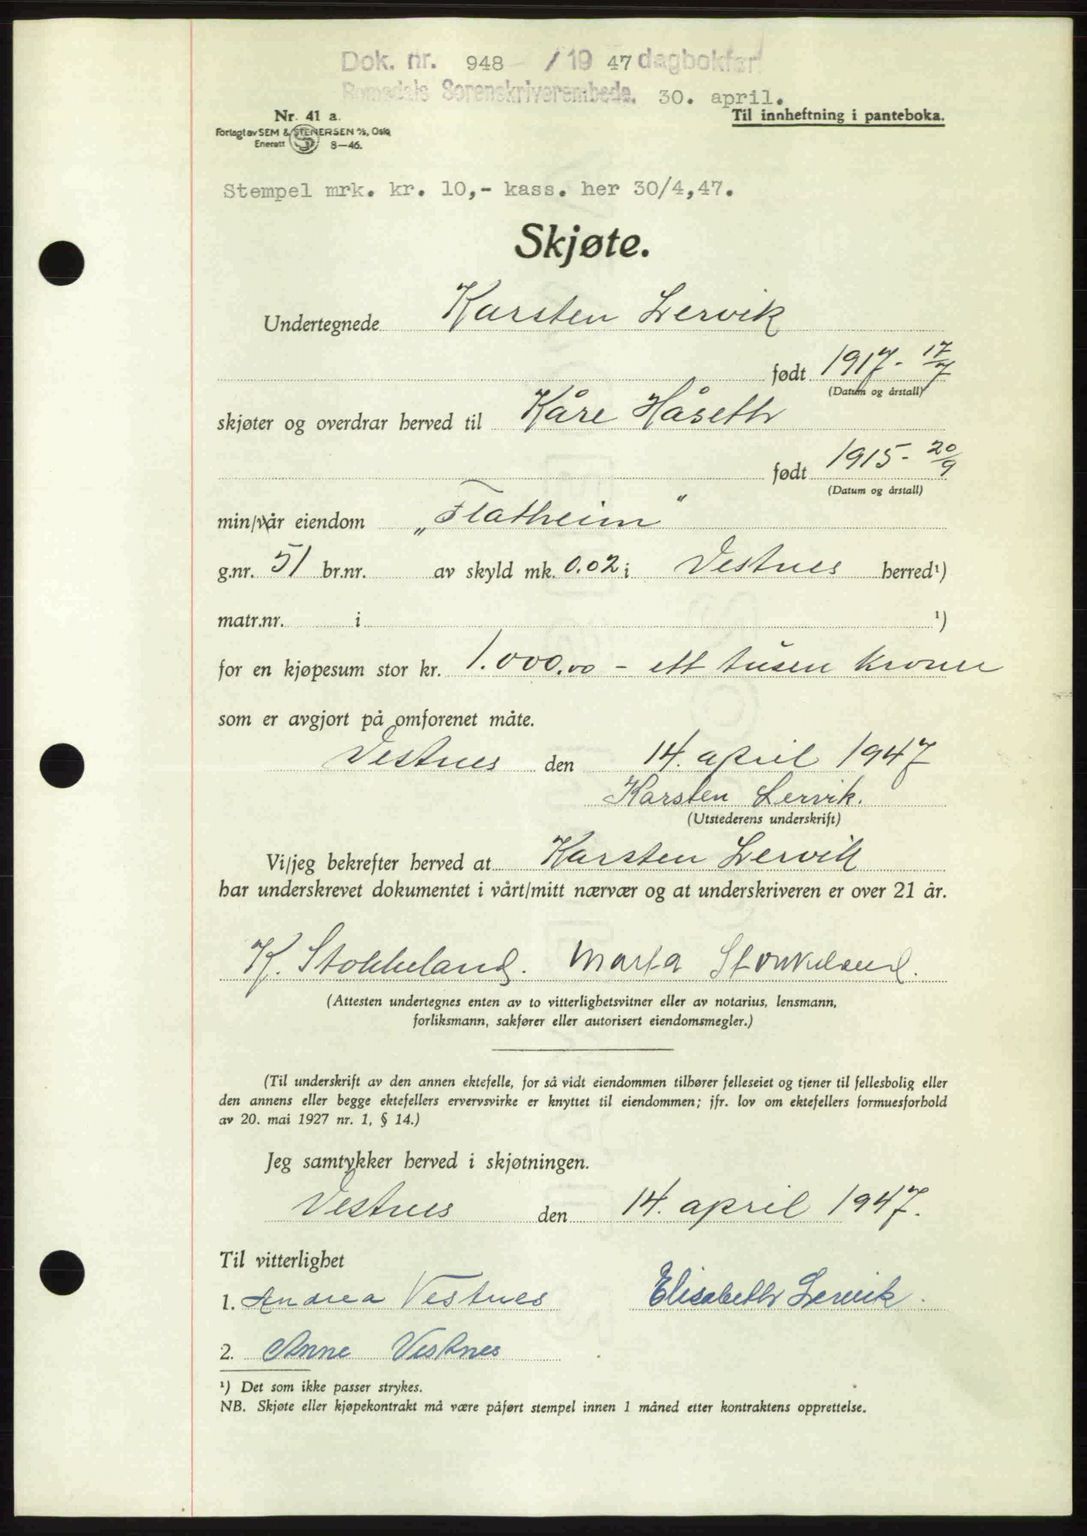 Dok. nr. 948 /1947 dagbokført
Romsdals Sorenskriverembede. 30. april.
Nr. 41 a.
Til innheftning i panteboka.
Forlagt av SEM & STENERSEN A/S, Oslo
Enerett 8-46.
Stempel mrk. kr. 10,- kass. her 30/4,47.
Skjøte.
Undertegnede Karsten Lervik
født 1917 - 17/7
(Datum og årstall)
skjøter og overdrar herved til Kåre Håseth
født 1915 - 20/9
(Datum og årstall)
min/vår eiendom „Flatheim"
g.nr. 51 br.nr. av skyld mk. 0.02 i Vestnes herred¹)
matr.nr. i ¹)
for en kjøpesum stor kr. 1.000,00 - ett tusen kroner
som er avgjort på omforenet måte.
Vestnes den 14. april 1947
Karsten Lervik.
(Utstederens underskrift)
Vi/jeg bekrefter herved at Karsten Lervik
har underskrevet dokumentet i vårt/mitt nærvær og at underskriveren er over 21 år.
K. Stokkeland. Marta Stokkeland.
(Attesten undertegnes enten av to vitterlighetsvitner eller av notarius, lensmann,
forliksmann, sakfører eller autorisert eiendomsmegler.)
(Til underskrift av den annen ektefelle, for så vidt eiendommen tilhører felleseiet og tjener til fellesbolig eller
den annens eller begge ektefellers ervervsvirke er knyttet til eiendommen; jfr. lov om ektefellers formuesforhold
av 20. mai 1927 nr. 1, § 14.)
Jeg samtykker herved i skjøtningen.
Vestnes den 14. april 1947.
Til vitterlighet
1. Andrea Vestnes Elisabeth Lervik.
2. Anne Vestnes
¹) Det som ikke passer strykes.
NB. Skjøte eller kjøpekontrakt må være påført stempel innen 1 måned etter kontraktens opprettelse.